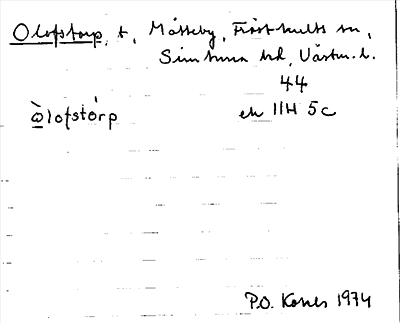 Olofstorp, t, Måtteby, Fröst​hults sn,
Simtuna hd, Västm. l.
44
òlofstórp ek 11H 5c
P.O. Kares 1974